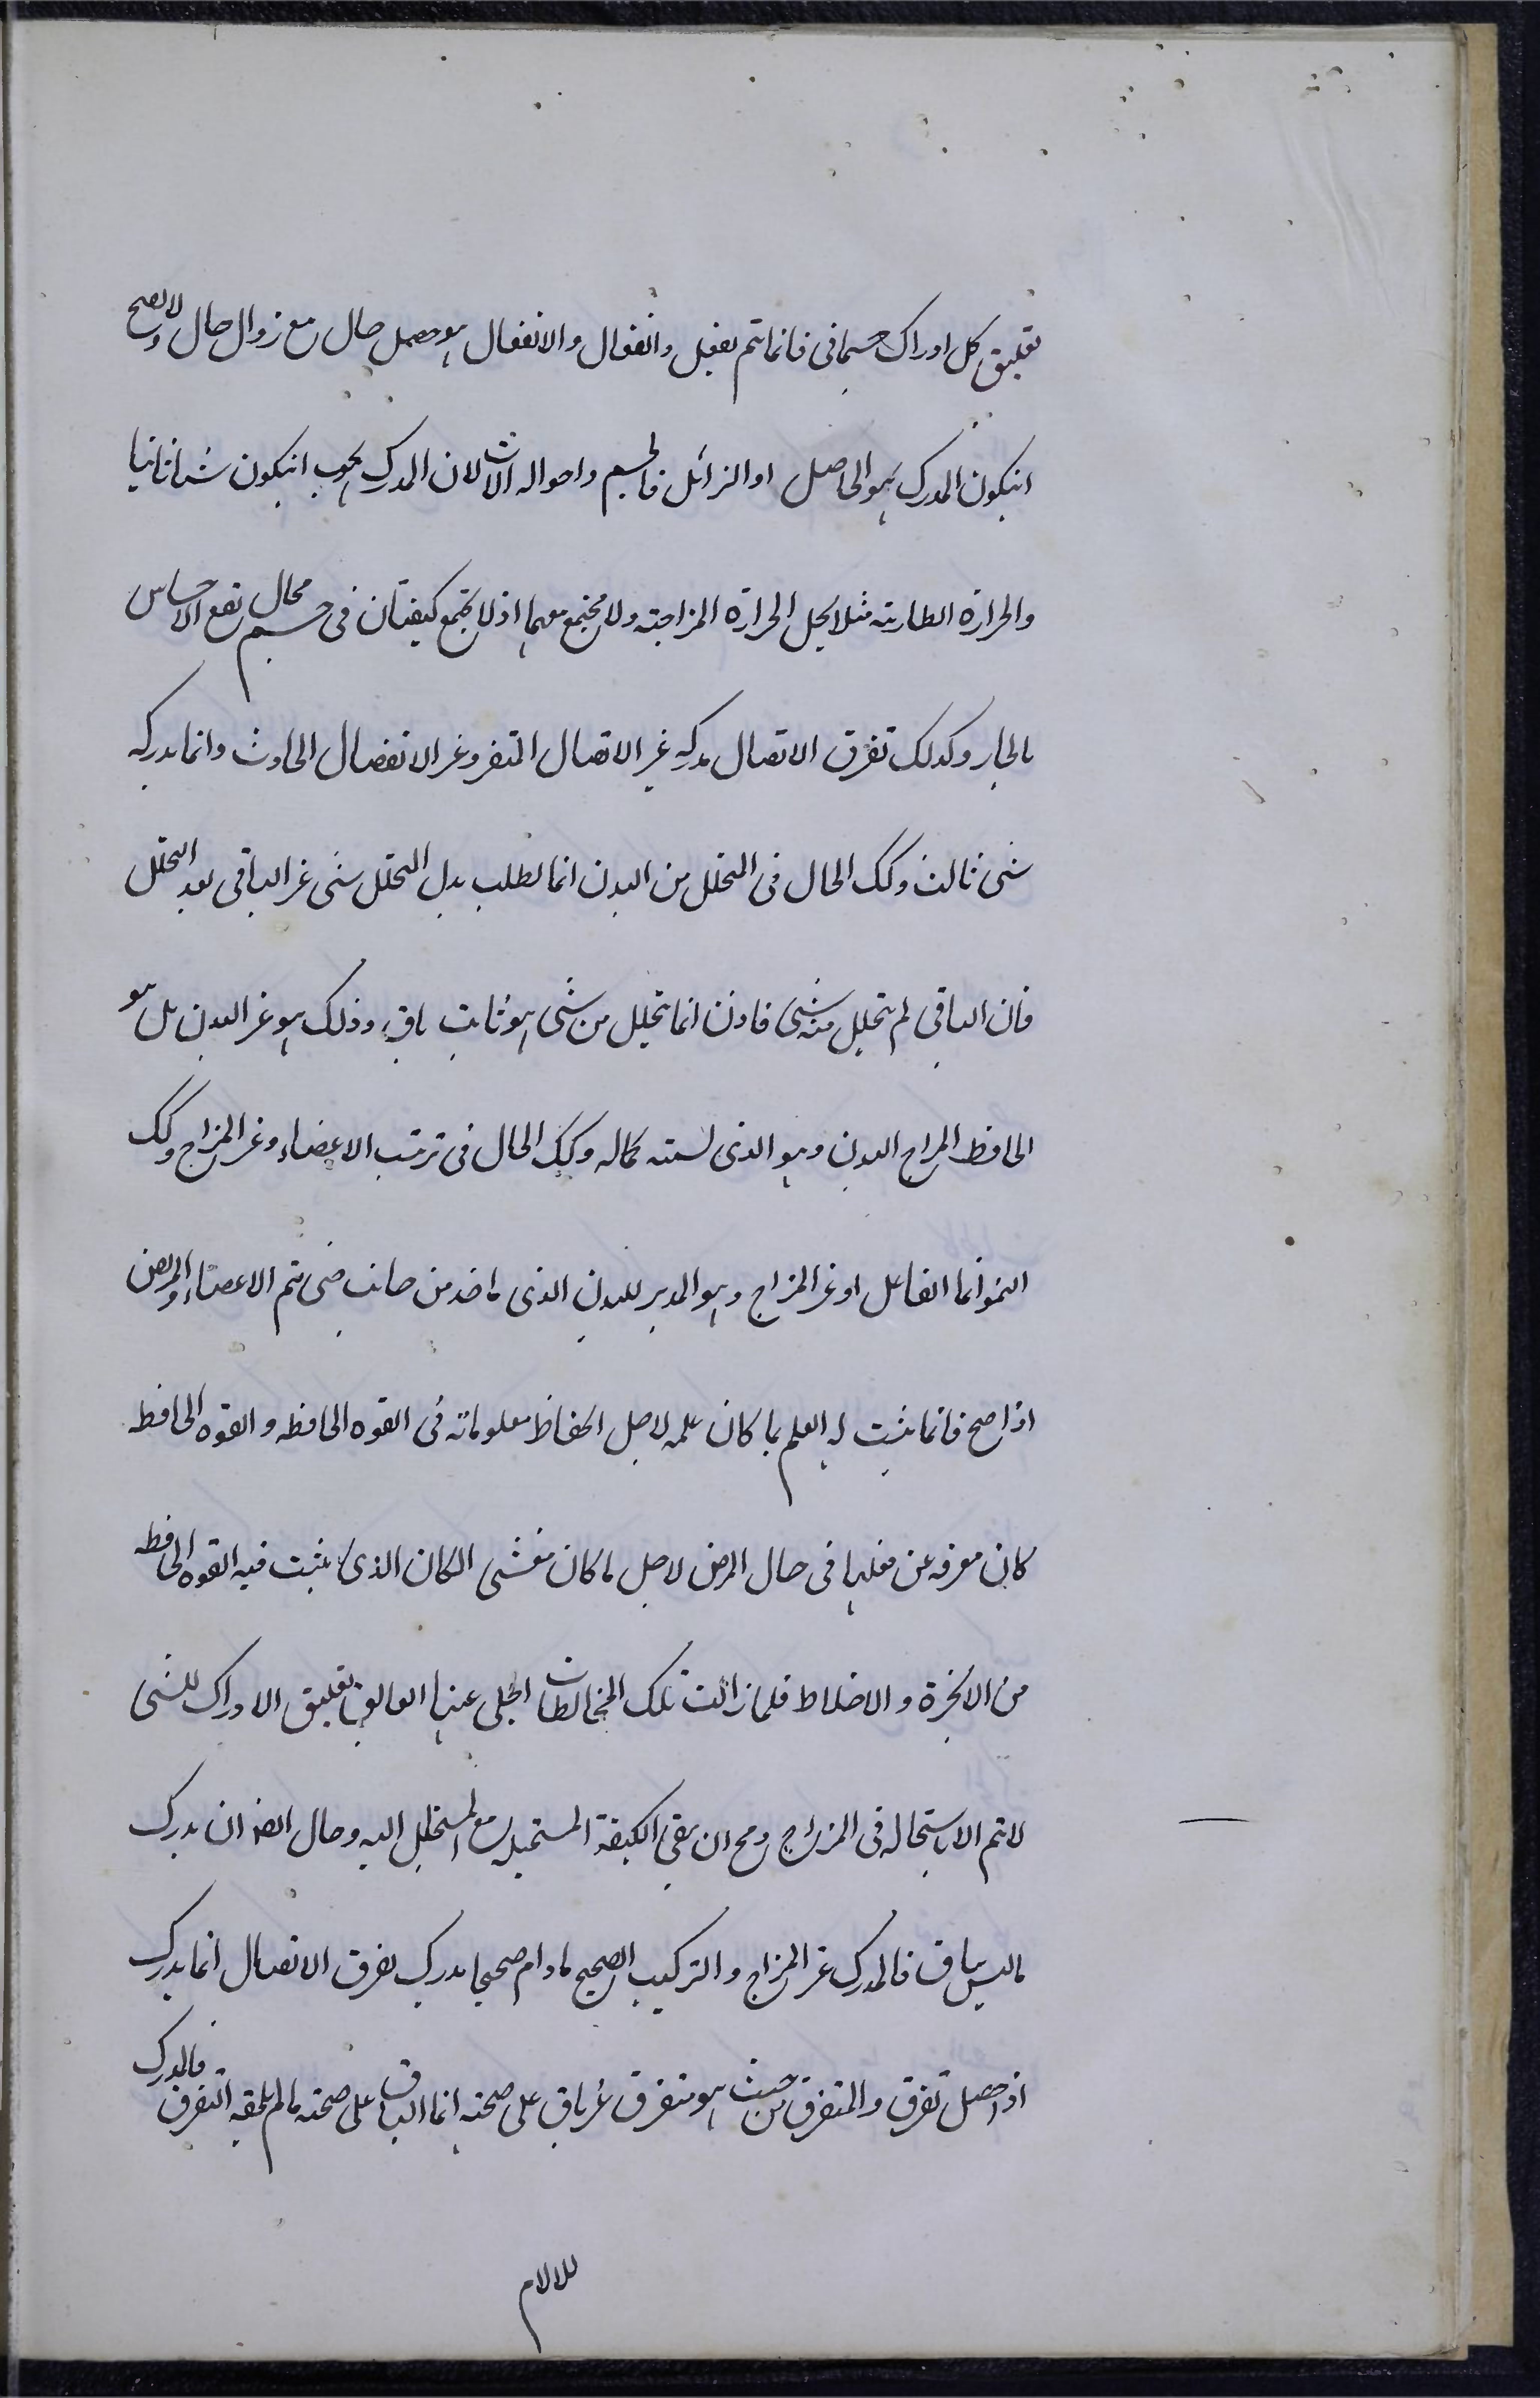 تعليق كل ادراك جسمانى فانما تتم بفعل وانفعال والانفعال هو حصول حال مع زوال حال ولا يصح
انيكون المدرك هو الحاصل او الزائل فالجسم واحواله الات لان المدرك يجب انيكون شيأ ثانيا
والحرارة الطارية مثلا تحل الحرارة المزاجية ولا تجتمع معها اذ لا تجتمع كيفيتان فى جسم محال تقع الاحساس
بالحار وكذلك تفرق الاتصال مدركه غير الاتصال المتفر وغير الانفصال الحادث وانما يدركه
شى ثالث وكك الحال فى التحلل من البدن انما يطلب بدل التحلل شى غير الباقى بعد التحلل
فان الباقى لم يتحلل منه شى فاذن انما تحلل من شى هو ثابت باق وذلك هو غير البدن بل هو
الحافظ المزاج البدن وهو الذى كماله وكك الحال فى ترتيب الاعضاء وغير المزاج وكك
النمو انما الفاعل او غير المزاج وهو المدبر للبدن الذى ياخذ من جانب حتى يتم الاعضاء والمريض
اذا صح فانما يثبت له العلم بما كان علمه لاجل انحفاظ معلوماته فى القوه الحافظه والقوه الحافظه
كان معرفه عن فعلها فى حال المرض لاجل ما كان مغشى المكان الذى يثبت فيه القوه الحافظه
من الابخرة والاخلاط فلما زالت تلك المخالطات انجلى عنها العائق تعليق الادراك للشى
لا تتم الا باستحاله فى المزاج ومح ان يبقى الكيفية المستحيله مع المستحيل اليه ومحال ايضا ان يدرك
ما ليس بباق فالمدرك غير المزاج والتركيب الصحيح مادام صحيحا يدرك بفرق الاتصال انما يدرك
اذا حصل تفرق والمتفرق من حيث هو متفرق غير باق على صحته انما الباقى على صحته ما لم يلحقه التفرق فالمدرك
للالام